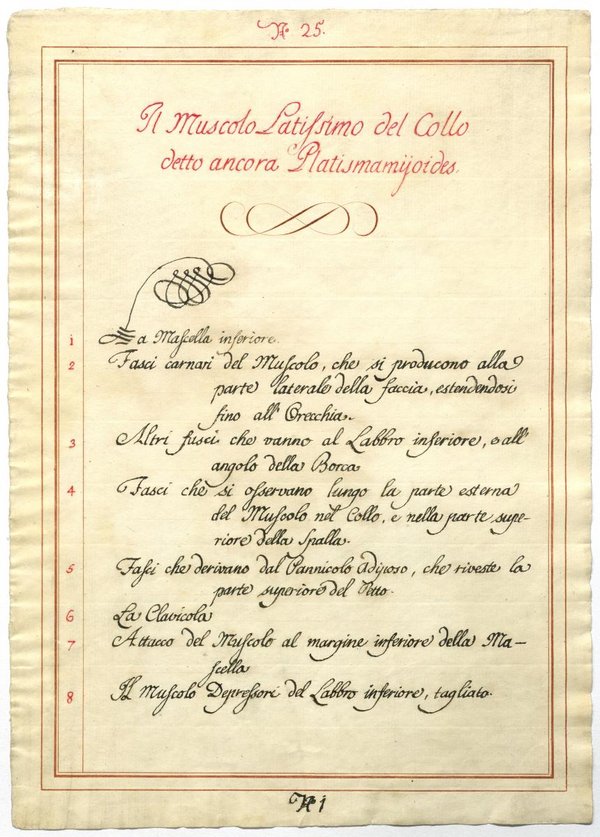 N.º 25.
Il Muscolo Latiſsimo del Collo
detto ancora Platismamijoides.
1 La Maſcella inferiore.
2 Faſci carnari del Muſcolo, che si producono alla
parte laterale della faccia, estendendosi
fino all' Orecchia.
3 Altri fusci che vanno al Labbro inferiore, e all'
angolo della Bocca
4 Fasci che si oſservano lungo la parte esterna
del Muſcolo nel Collo, e nella parte supe-
riore della Spalla.
5 Faſci che derivano dal Pannicolo Adiposo, che riveste la
parte superiore del Petto.
6 La Clavicola
7 Attacco del Muſcolo al margine inferiore della Ma-
ſcella
8 Il Muſcolo Depreſsori del Labbro inferiore, tagliato.
Nº 1